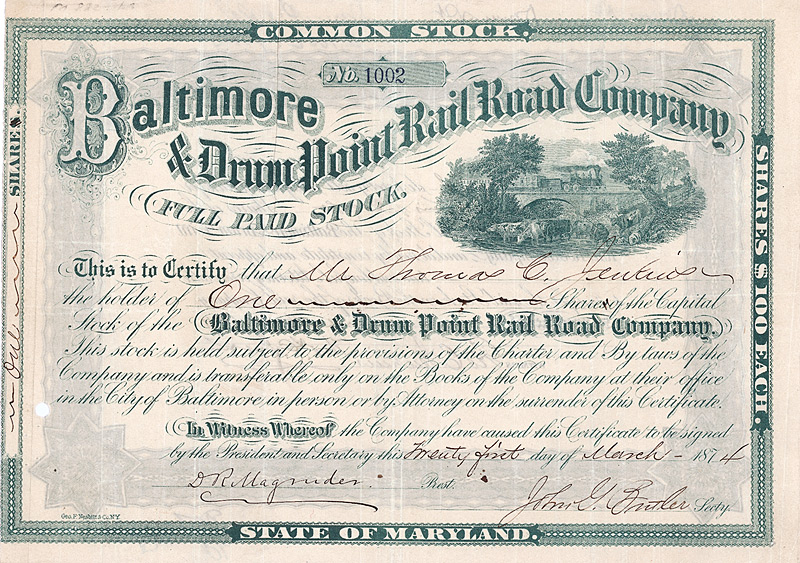 COMMON STOCK.
No. 1002
Baltimore
& Drum Point Rail Road Company
FULL PAID STOCK.
This is to Certify that Mr Thomas C. Jenkins
the holder of One Shares of the Capital
Stock of the Baltimore & Drum Point Rail Road Company.
This stock is held subject to the provisions of the Charter and By laws of the
Company and is transferable only on the Books of the Company at their office
in the City of Baltimore in person or by Attorney on the surrender of this Certificate.
In Witness Whereof the Company have caused this Certificate to be signed
by the President and Secretary this Twenty first day of March 1874
D R Magruder. Prest. John G. Butler Secty.
Geo. F. Nesbitt & Co. N.Y.
STATE OF MARYLAND.
SHARES
One
SHARES $100 EACH.